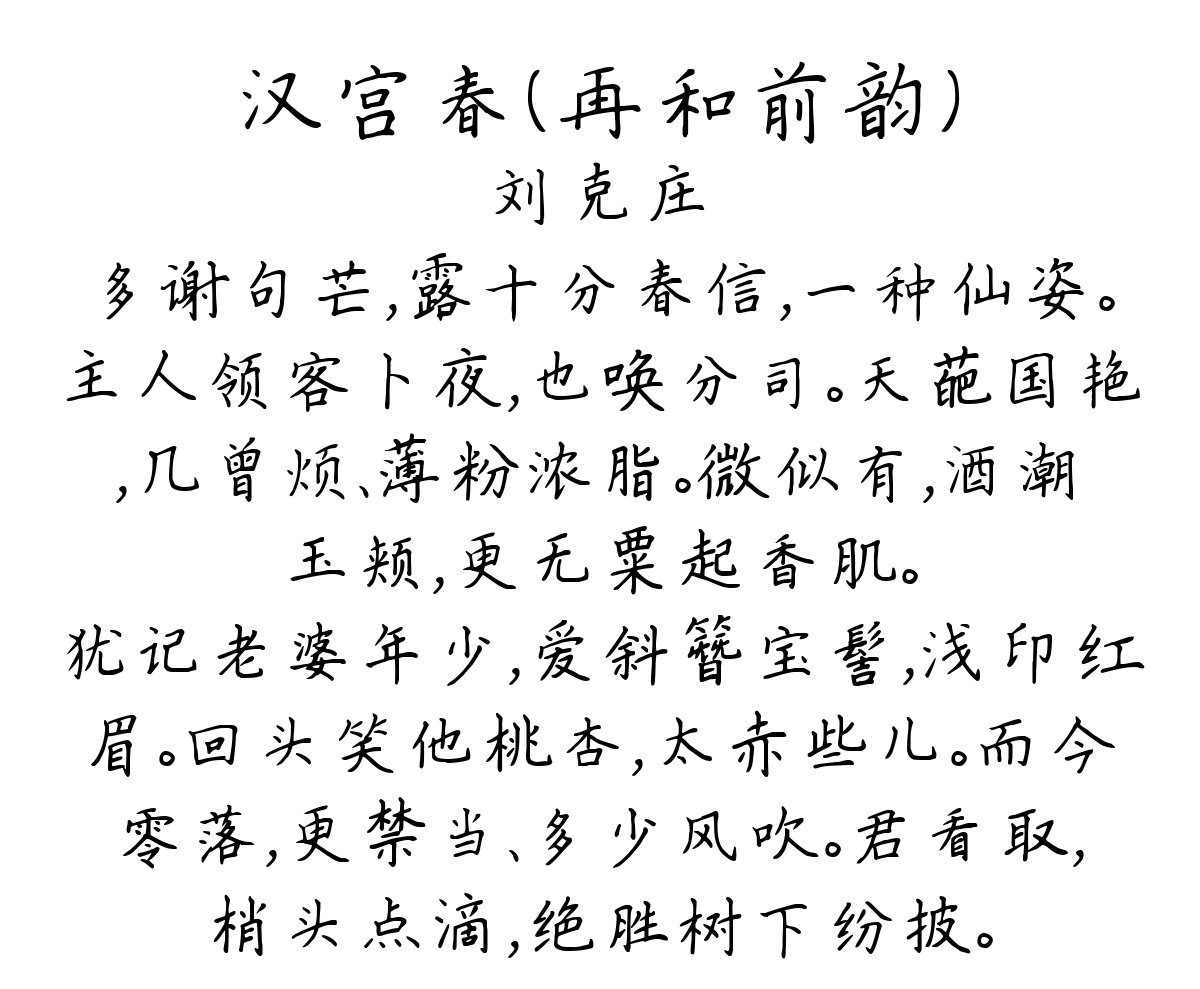 汉宫春(再和前韵)
刘克庄
多谢句芒,露十分春信,一种仙姿。
主人领客卜夜,也唤分司。天葩国艳
,几曾烦、薄粉浓脂。微似有,酒潮
玉颊,更无粟起香肌。
犹记老婆年少,爱斜簪宝髻,浅印红
眉。回头笑他桃杏,太赤些儿。而今
零落,更禁当、多少风吹。君看取,
梢头点滴,绝胜树下纷披。